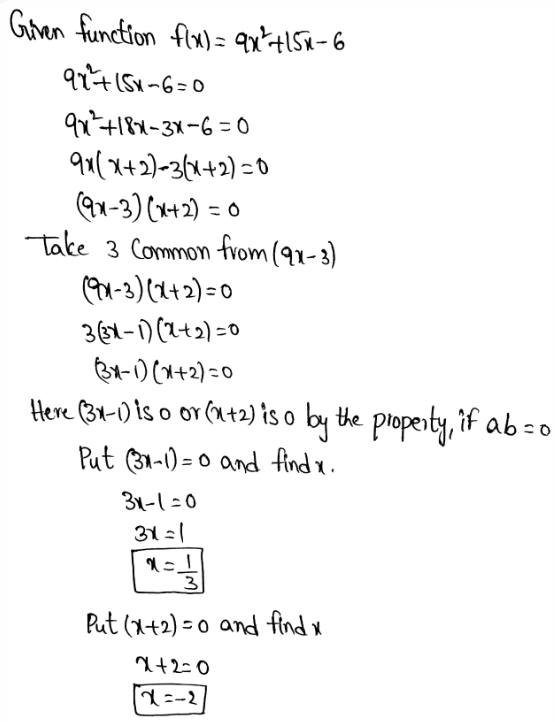 Given function f(x) = 9x²+15x-6
9x²+15x-6=0
9x²+18x-3x-6=0
9x(x+2)-3(x+2)=0
(9x-3)(x+2)=0
Take 3 Common from (9x-3)
(9x-3)(x+2)=0
3(3x-1)(x+2)=0
(3x-1)(x+2)=0
Here (3x-1) is 0 or (x+2) is 0 by the property, if ab=0
Put (3x-1)=0 and find x.
3x-1=0
3x=1
x=1/3
Put (x+2)=0 and find x
x+2=0
x=-2